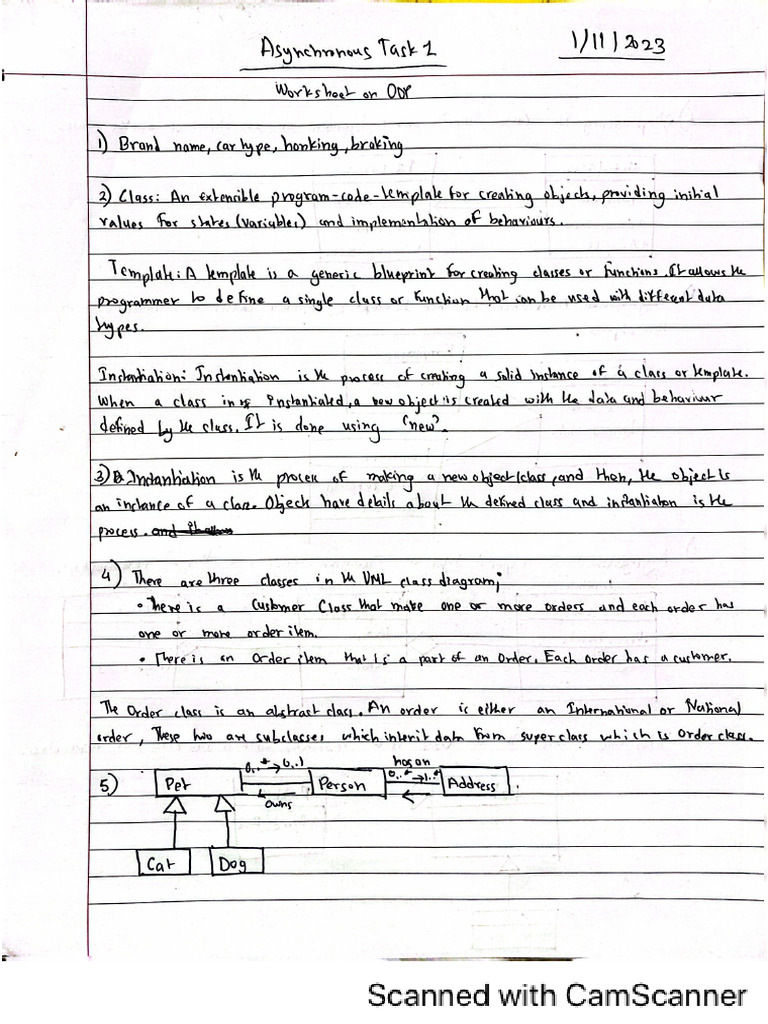 Asynchronous Task 1
1/11/2023
Worksheet on OOP
1) Brand name, car type, honking, braking
2) Class: An extensible program-code-template for creating objects, providing initial
values for states (variables) and implementation of behaviours.
Template: A template is a generic blueprint for creating classes or functions. It allows the
programmer to define a single class or function that can be used with different data
types.
Instantiation: Instantiation is the process of creating a solid instance of a class or template.
When a class is instantiated, a new object is created with the data and behaviour
defined by the class. It is done using 'new'.
3) Instantiation is the process of making a new object/class, and then, the object is
an instance of a class. Objects have details about the defined class and instantiation is the
process.
4) There are three classes in the UML class diagram;
• There is a Customer Class that make one or more orders and each order has
one or more order item.
• There is an Order item that is a part of an Order. Each order has a customer.
The Order class is an abstract class. An order is either an International or National
order, These two are subclasses which interit data from superclass which is Order class.
5) Pet 0..* → 0..1 ← owns Person has an 0..* → 1..* ← Address.
Cat Dog
Scanned with CamScanner